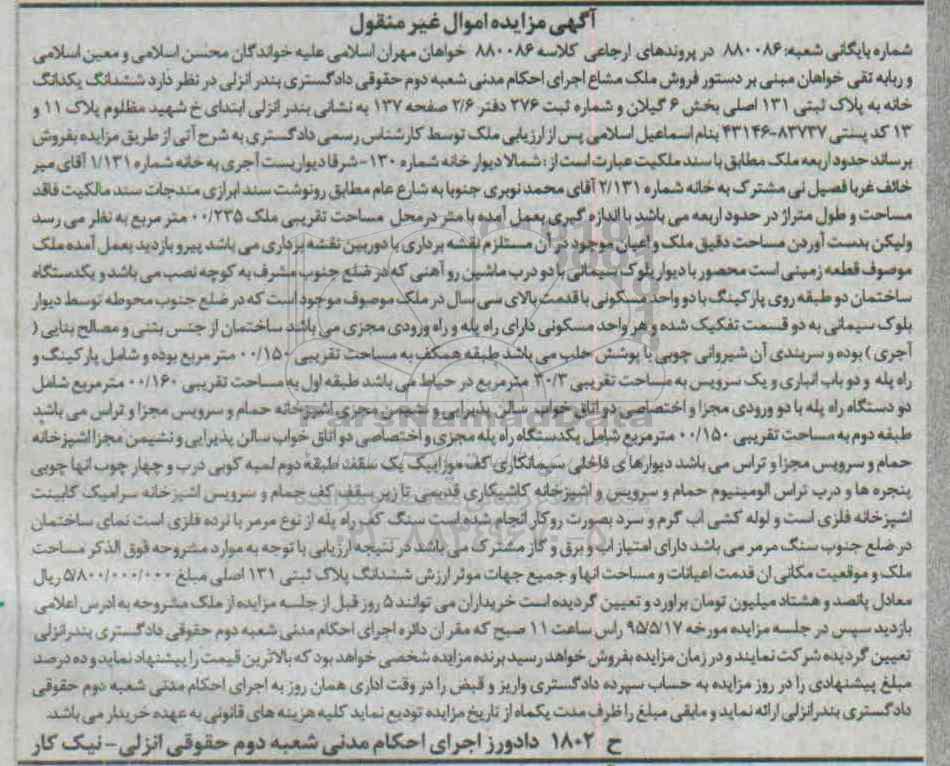 آگهی مزایده اموال غیر منقول
شماره بایگانی شعبه: ۸۸۰۰۸۶ در پروندهای ارجاعی کلاسه ۸۸۰۰۸۶ خواهان مهران اسلامی علیه خواندگان محسن اسلامی و معین اسلامی
و ربابه تقی خواهان مبنی بر دستور فروش ملک مشاع اجرای احکام مدنی شعبه دوم حقوقی دادگستری بندر انزلی در نظر دارد ششدانگ یکدانگ
خانه به پلاک ثبتی ۱۳۱ اصلی بخش ۶ گیلان و شماره ثبت ۲۷۶ دفتر ۲/۶ صفحه ۱۳۷ به نشانی بندر انزلی ابتدای خ شهید مظلوم پلاک ۱۱ و
۱۳ کد پستی ۸۳۷۳۷-۴۳۱۴۶ بنام اسماعیل اسلامی پس از ارزیابی ملک توسط کارشناس رسمی دادگستری به شرح آتی از طریق مزایده بفروش
برساند حدود اربعه ملک مطابق با سند ملکیت عبارت است از: شمالا دیوار خانه شماره ۱۳۰- شرقا دیواریست آجری به خانه شماره ۱/۱۳۱ آقای میر
خائف غربا فصیل نی مشترک به خانه شماره ۲/۱۳۱ آقای محمد نوبری جنوبا به شارع عام مطابق رونوشت سند ابرازی مندجات سند مالکیت فاقد
مساحت و طول متراژ در حدود اربعه می باشد با اندازه گیری بعمل آمده با متر در محل مساحت تقریبی ملک ۰۰/۲۳۵ متر مربع به نظر می رسد
ولیکن بدست آوردن مساحت دقیق ملک و اعیان موجود در آن مستلزم نقشه برداری با دوربین نقشه برداری می باشد پیرو بازدید بعمل آمده ملک
موصوف قطعه زمینی است محصور با دیوار بلوک سیمانی با دو درب ماشین رو آهنی که در ضلع جنوب مشرف به کوچه نصب می باشد و یکدستگاه
ساختمان دو طبقه روی پارکینگ با دو واحد مسکونی با قدمت بالای سی سال در ملک موصوف موجود است که در ضلع جنوب محوطه توسط دیوار
بلوک سیمانی به دو قسمت تفکیک شده و هر واحد مسکونی دارای راه پله و راه ورودی مجزی می باشد ساختمان از جنس بتنی و مصالح بنایی (
آجری) بوده و سربندی آن شیروانی چوبی با پوشش حلب می باشد طبقه همکف به مساحت تقریبی ۰۰/۱۵۰ متر مربع بوده و شامل پارکینگ و
راه پله و دو باب انباری و یک سرویس به مساحت تقریبی ۳۰/۳ مترمربع در حیاط می باشد طبقه اول به مساحت تقریبی ۰۰/۱۶۰ مترمربع شامل
دو دستگاه راه پله با دو ورودی مجزا و اختصاصی دو اتاق خواب سالن پذیرایی و نشیمن مجزی اشپزخانه حمام و سرویس مجزا و تراس می باشد
طبقه دوم به مساحت تقریبی ۰۰/۱۵۰ مترمربع شامل یکدستگاه راه پله مجزی و اختصاصی دو اتاق خواب سالن پذیرایی و نشیمن مجزا اشپزخانه
حمام و سرویس مجزا و تراس می باشد دیوارهای داخلی سیمانکاری کف موزاییک یک سقف طبقه دوم لمبه کوبی درب و چهار چوب انها چوبی
پنجره ها و درب تراس الومینیوم حمام و سرویس و اشپزخانه کاشیکاری قدیمی تا زیر سقف کف حمام و سرویس اشپزخانه سرامیک کابینت
اشپزخانه فلزی است و لوله کشی اب گرم و سرد بصورت روکار انجام شده است سنگ کف راه پله از نوع مرمر با نرده فلزی است نمای ساختمان
در ضلع جنوب سنگ مرمر می باشد دارای امتیاز اب و برق و گاز مشترک می باشد در نتیجه ارزیابی با توجه به موارد مشروحه فوق الذکر مساحت
ملک و موقعیت مکانی ان قدمت اعیانات و مساحت انها و جمیع جهات موثر ارزش ششدانگ پلاک ثبتی ۱۳۱ اصلی مبلغ ۵/۸۰۰/۰۰۰/۰۰۰ ریال
معادل پانصد و هشتاد میلیون تومان براورد و تعیین گردیده است خریداران می توانند ۵ روز قبل از جلسه مزایده از ملک مشروحه به ادرس اعلامی
بازدید سپس در جلسه مزایده مورخه ۹۵/۵/۱۷ راس ساعت ۱۱ صبح که مقر ان دائره اجرای احکام مدنی شعبه دوم حقوقی دادگستری بندرانزلی
تعیین گردیده شرکت نمایند و در زمان مزایده بفروش خواهد رسید برنده مزایده شخصی خواهد بود که بالاترین قیمت را پیشنهاد نماید و ده درصد
مبلغ پیشنهادی را در روز مزایده به حساب سپرده دادگستری واریز و قبض را در وقت اداری همان روز به اجرای احکام مدنی شعبه دوم حقوقی
دادگستری بندرانزلی ارائه نماید و مابقی مبلغ را ظرف مدت یکماه از تاریخ مزایده تودیع نماید کلیه هزینه های قانونی به عهده خریدار می باشد.
ح ۱۸۰۲ دادورز اجرای احکام مدنی شعبه دوم حقوقی انزلی - نیک کار
ParsNamadData